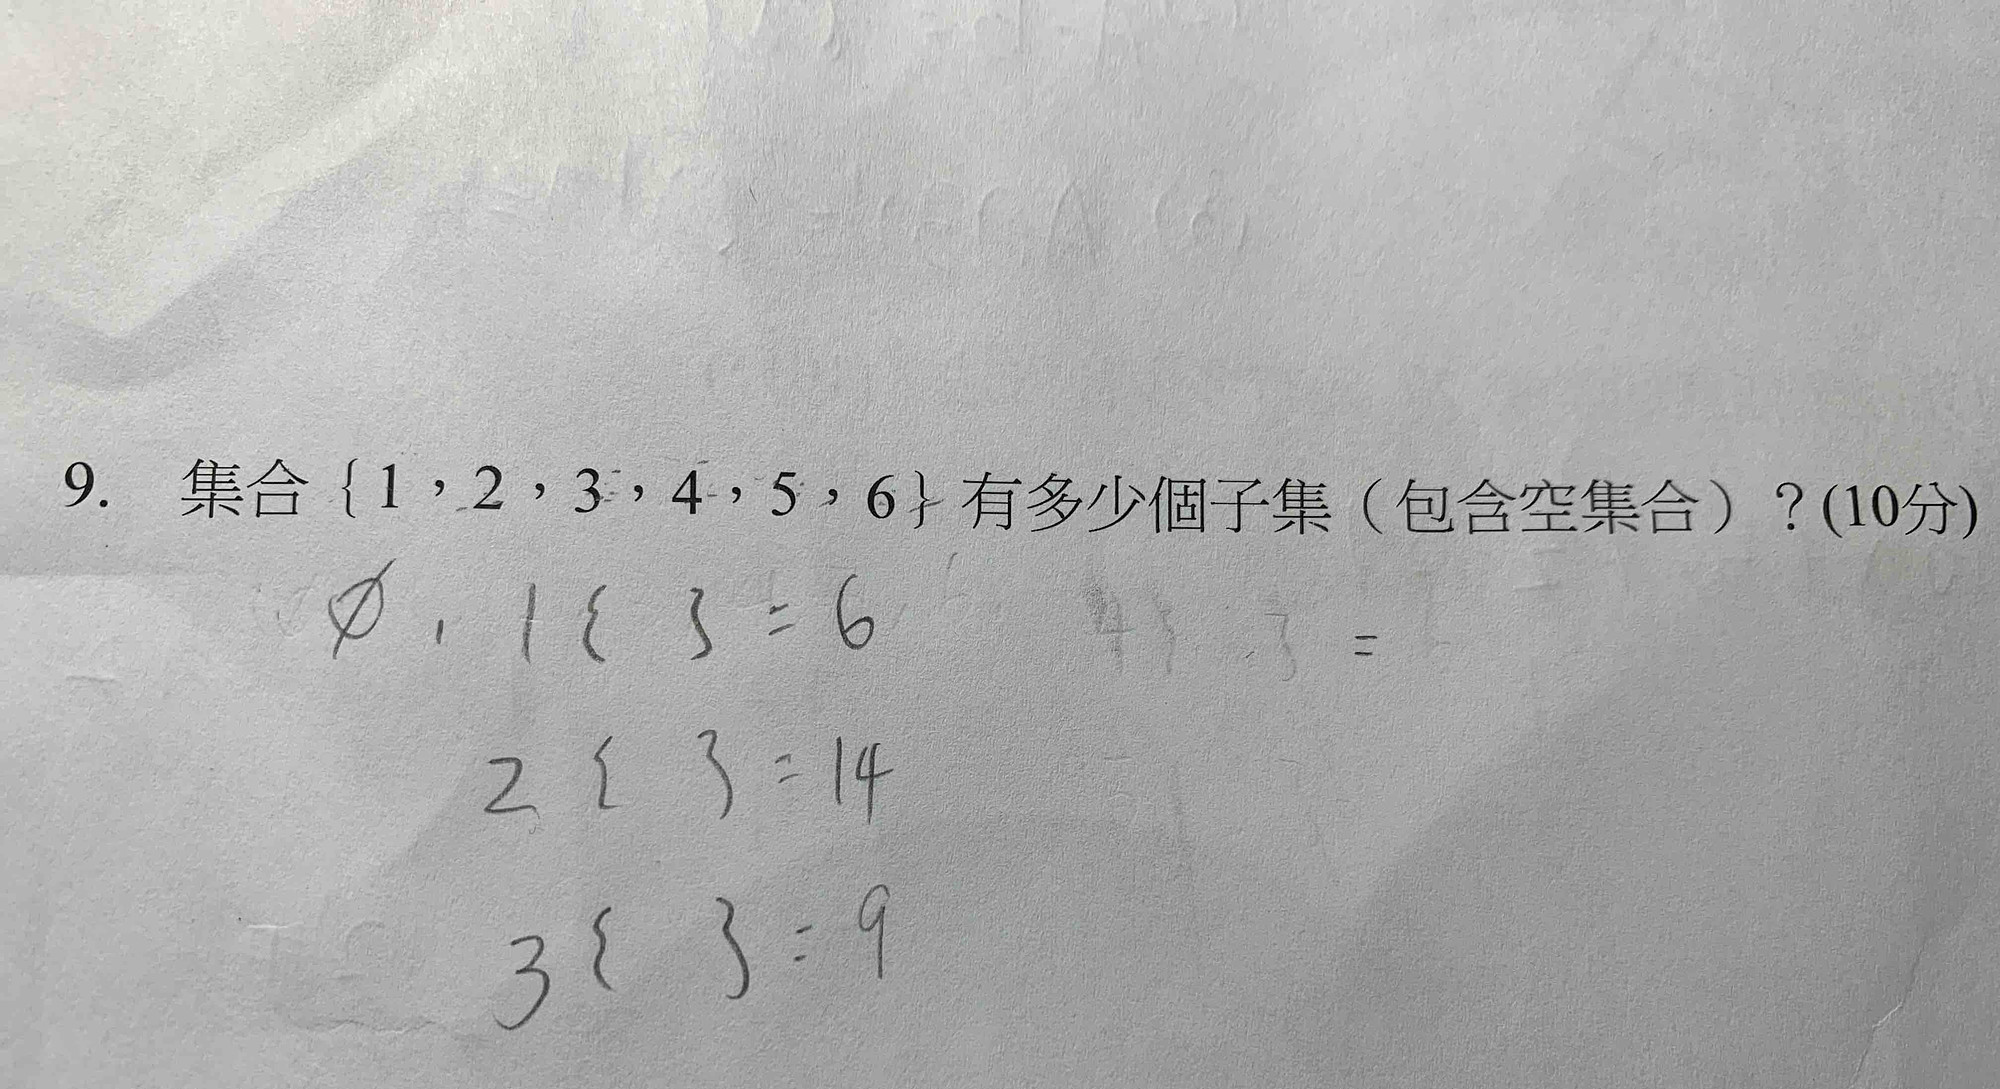 9. 集合{1，2，3，4，5，6}有多少個子集（包含空集合）？(10分)
∅, 1{ } = 6 4{ } =
2{ } = 14
3{ } = 9